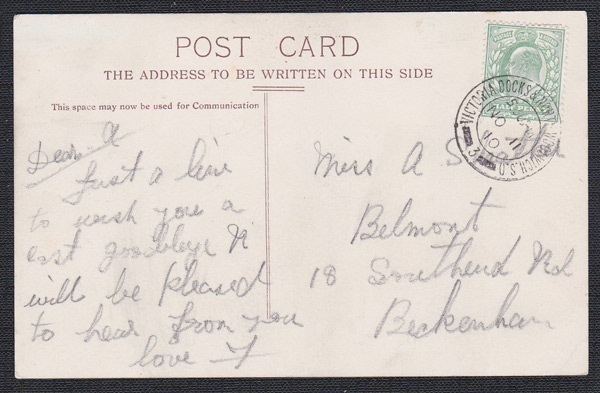 POST CARD
THE ADDRESS TO BE WRITTEN ON THIS SIDE
This space may now be used for Communication
Dear A
Just a line
to wish you a
last goodbye N
will be pleased
to hear from you
love
Miss A
Belmont
18 Southend Rd
Beckenham
VICTORIA DOCKS & NORTH WOOLWICH S.O
3